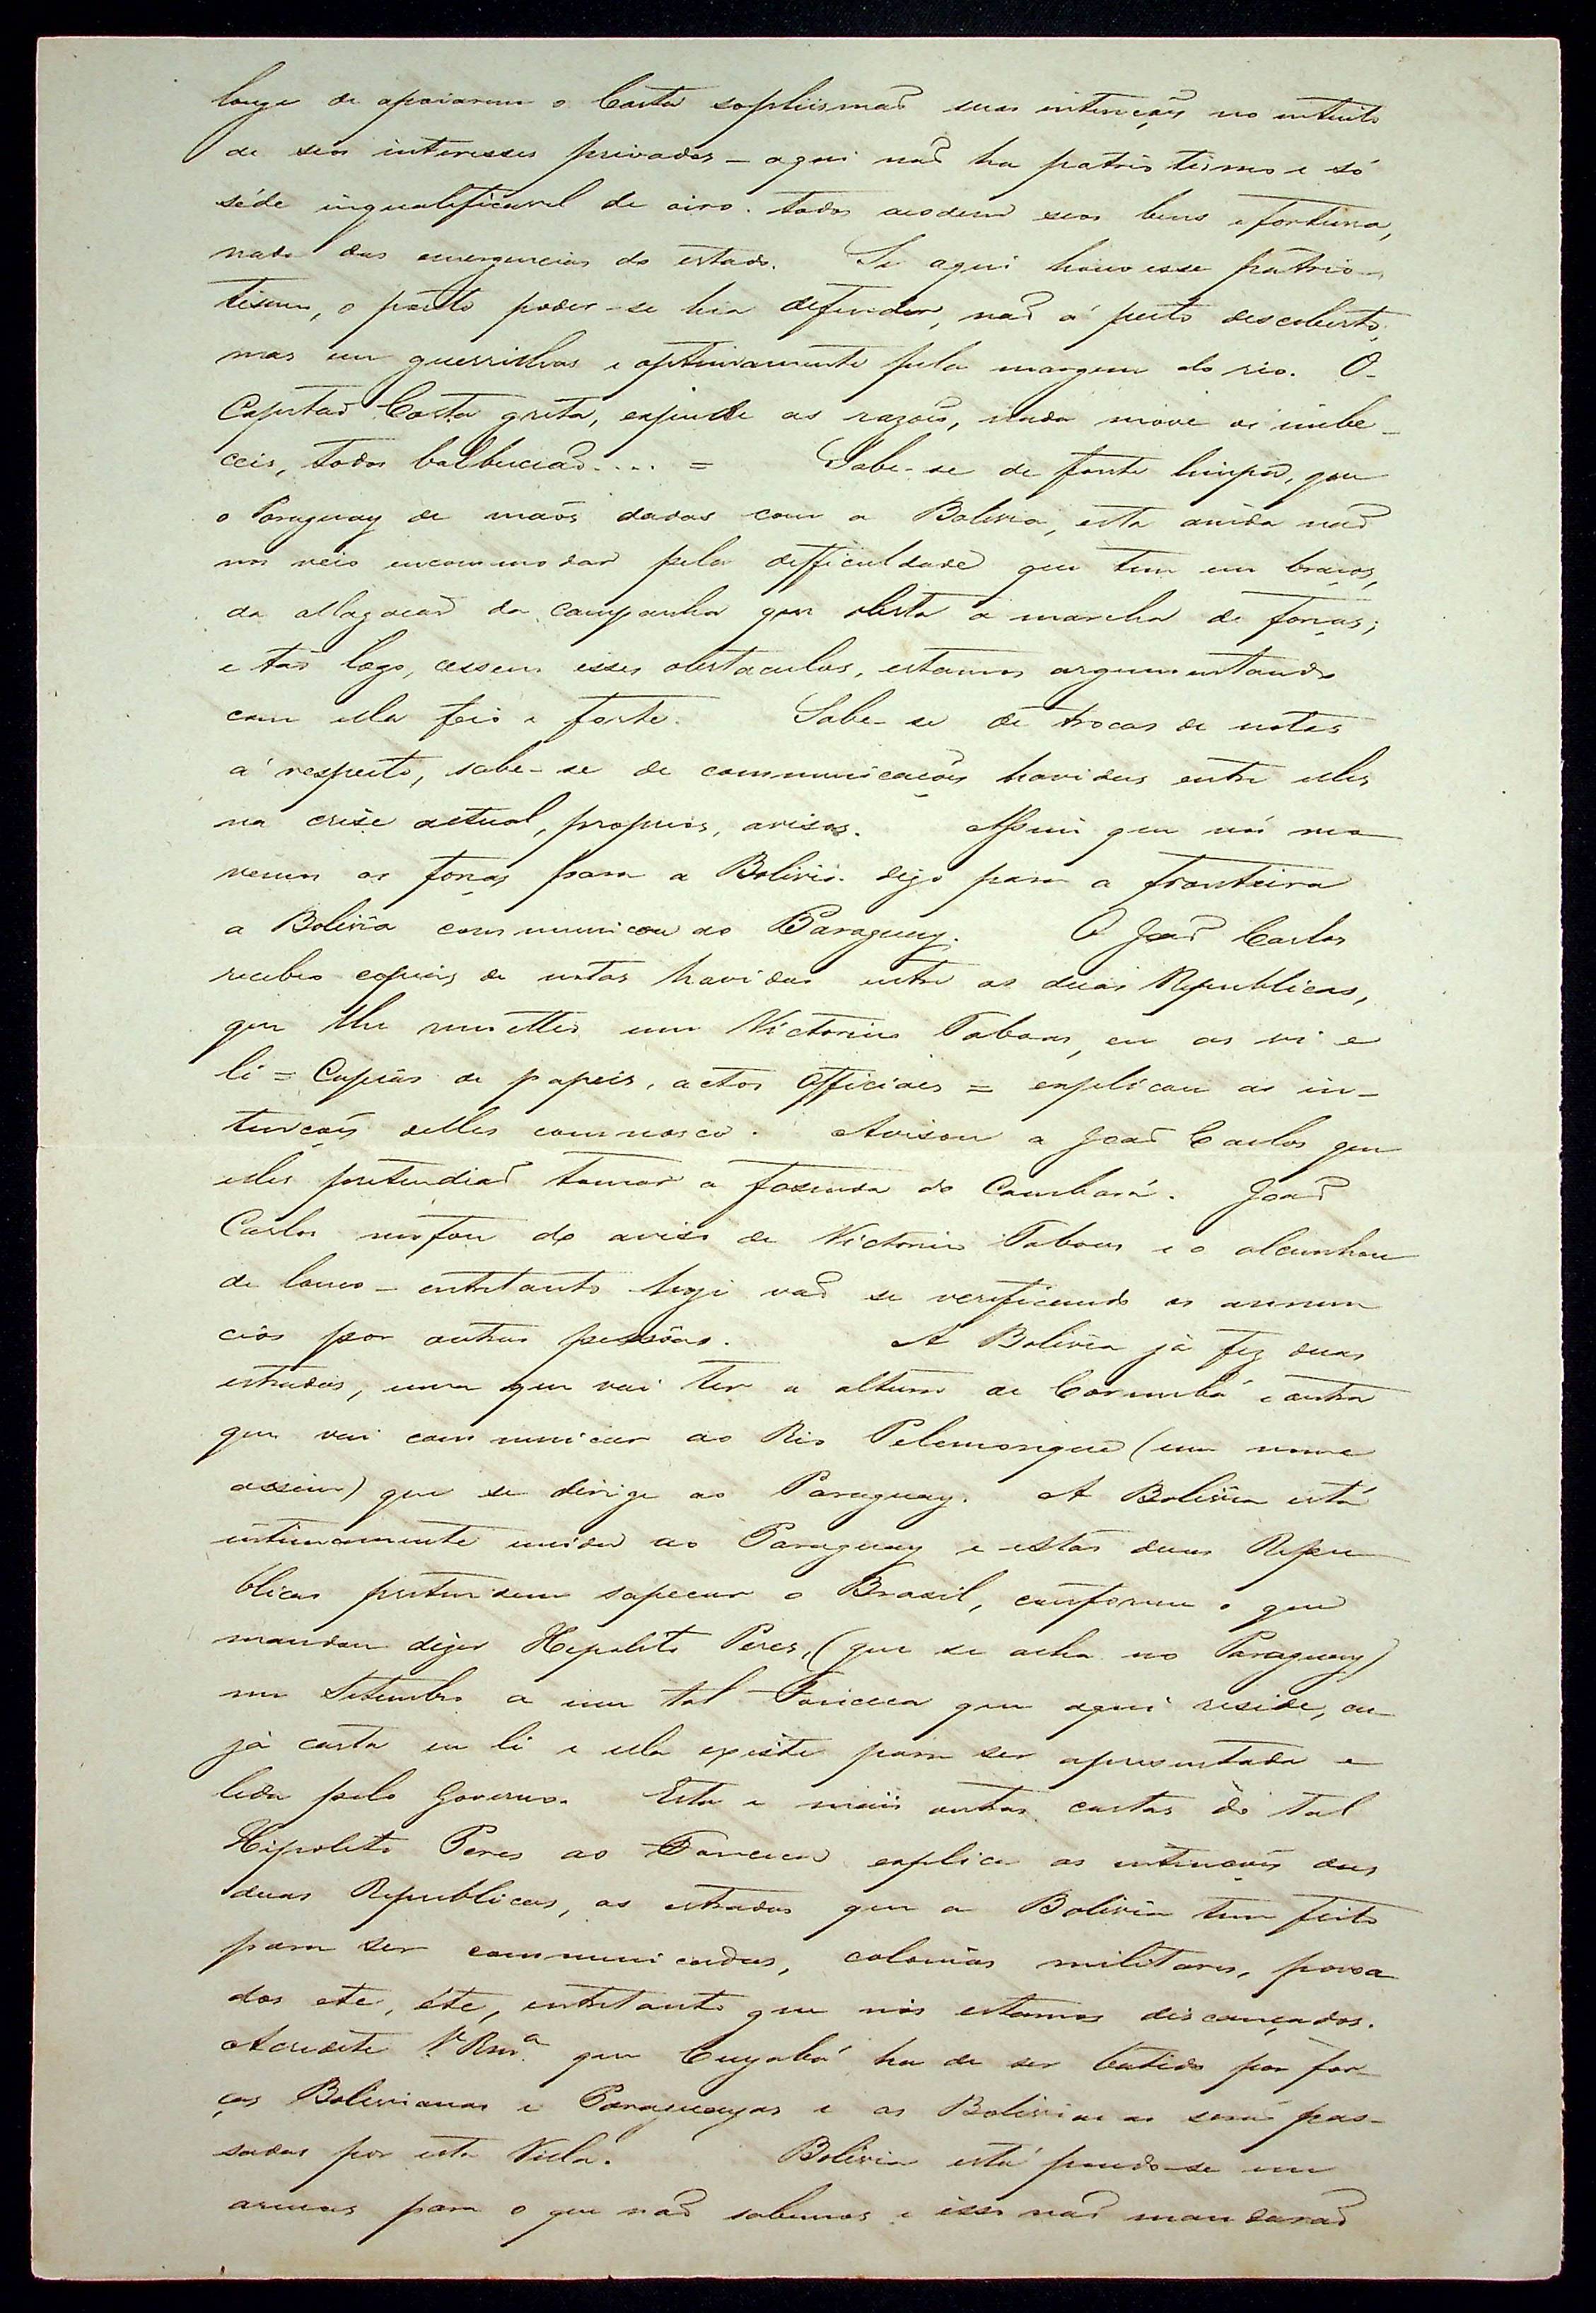 longe de apoiarem o Costa sophismaõ suas intenções no intuito
de seos interesses privados – aqui naõ ha patriotismo e só
séde inqualificavel de oiro. todos acodem seos bens e fortuna,
nada das emergencias do estado. Se aqui houvesse patrio-
tismo, o ponto poder-se hia defender, naõ a' peito descoberto,
mas em guerrilhas e optimamente pela margem do rio. O
Capitaõ Costa grita, expende as razões, nada move os imbe-
ceis, todos balbuciaõ.... = Sabe-se de fonte limpa, que
o Paraguay de maõs dadas com a Bolivia, esta ainda naõ
nos veio encommodar pela difficuldade que tem em braços,
da allagaçaõ da campanha que obsta a marcha de forças;
e taõ logo, cessem esses obstaculos, estamos argumentando
com ella feio e forte. Sabe-se de trocas de notas
a' respeito, sabe-se de communicações havidas entre elles
na crise actual, proprios, avisos. Assim que nós mo
vemos as forças para a Bolivia. digo para a fronteira
a Bolivia communicou ao Paraguay. O Joaõ Carlos
recebeo copias de notas havidas entre as duas Republicas,
que lhe remetteo um Victorino Taboas, eu as vi e
li = Copias de papeis, actos officiaes = explicaõ as in-
tenções delles comnosco. Avisou a Joaõ Carlos que
elles pretendiaõ tomar a fazenda do Cambará. Joaõ
Carlos mofou do aviso de Victorino Taboas e o alcunhou
de louco – entretanto hoje vaõ se verificando os annun
cios por outras pessôas. A Bolivia já fez duas
estradas, uma que vai ter a altura de Corumbá e outra
que vai communicar ao Rio Pelemorigue (um nome
assim) que se dirige ao Paraguay. A Bolivia está
intimamente unida ao Paraguay e estas duas Repu
blicas pretendem sapecar o Brasil, conforme o que
mandou dizer Hepolito Peres, (que se acha no Paraguay)
em Setembro a um tal Fonceca que aqui reside, cu-
já carta eu li e ella existe para ser apresentada e
lida pelo Governo. Esta e mais outras cartas do tal
Hipolito Peres ao Fonceca explica as intenções das
duas Republicas, as estradas que a Bolivia tem feito
para ser communicadas, colonias militares, povoa
dos etc, etc, entretanto que nós estamos descançados.
Acredite V. Rm.ª que Cuyabá ha de ser batido por for-
ças Bolivianas e Paraguayas e as Bolivianas seraõ pas-
sadas por esta Villa. Bolivia está pondo-se em
armas para o que naõ sabemos e isso naõ mandaraõ